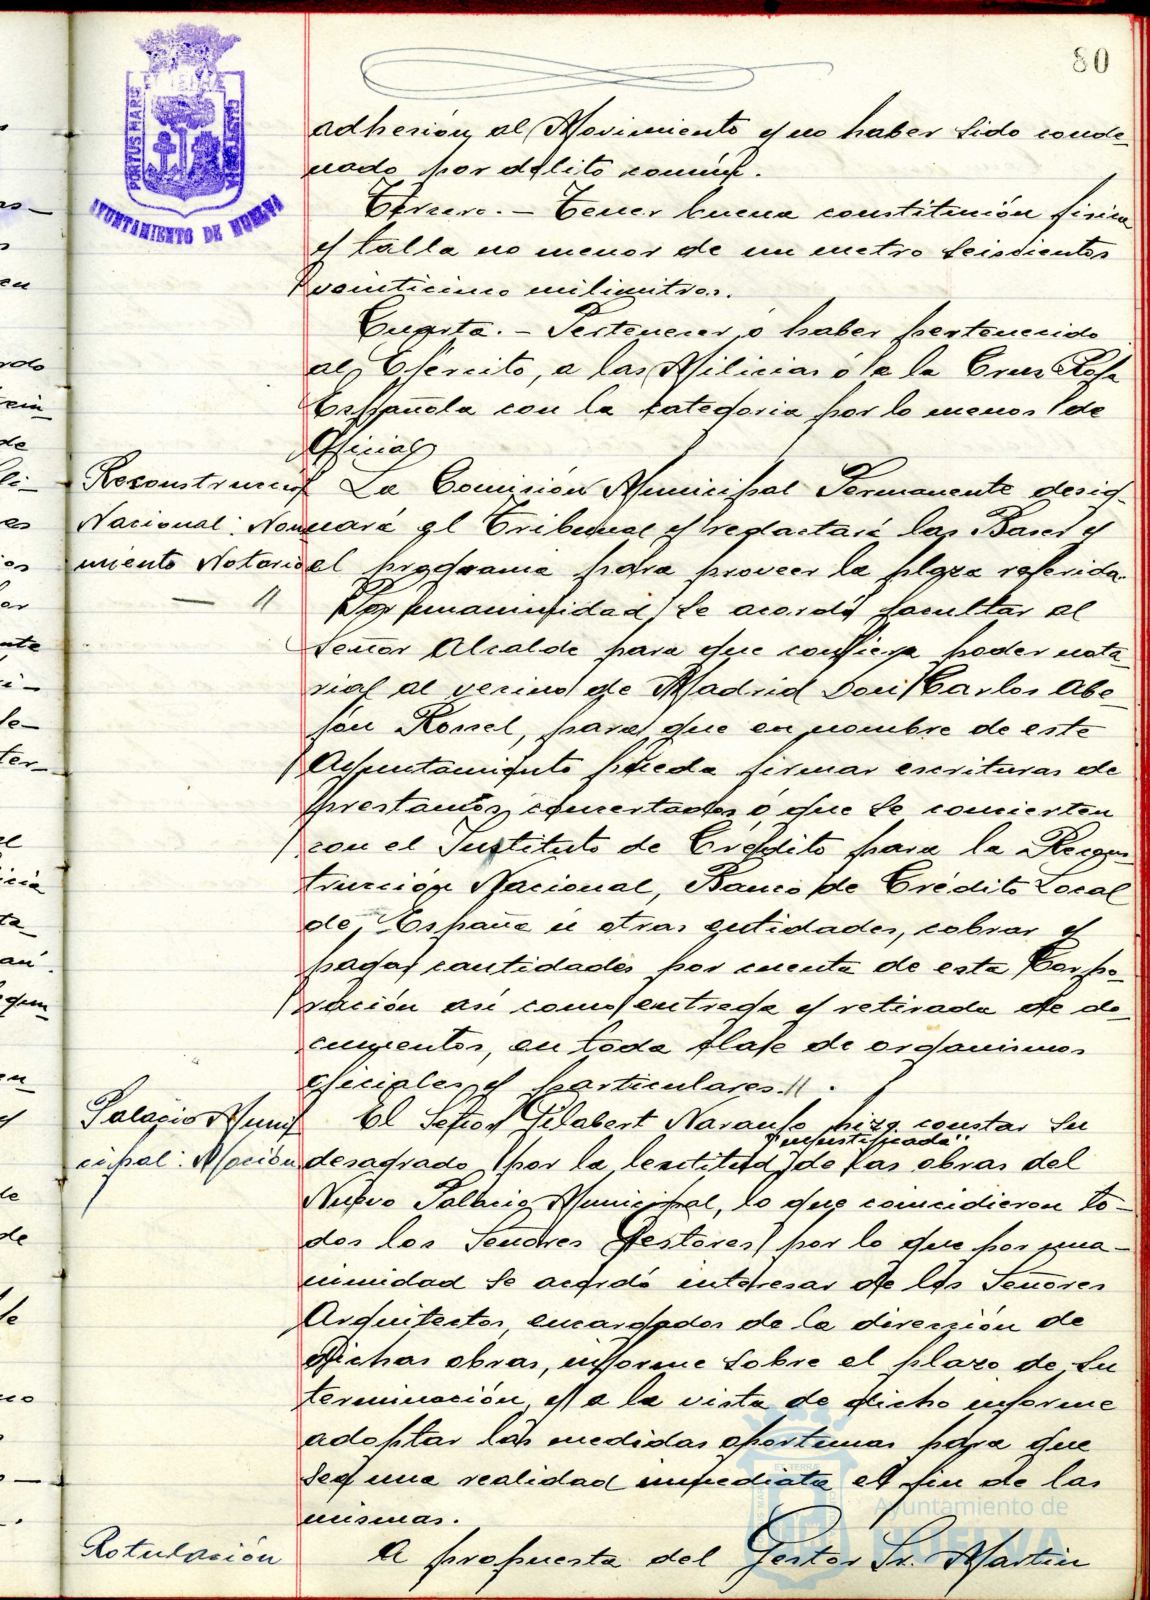 80
PORTUS MARIS ET TERRÆ CUSTODIA
AYUNTAMIENTO DE HUELVA
adhesión al Movimiento y no haber sido conde-
nado por delito común.
Tercero. - Tener buena constitución física
y talla no menor de un metro seiscientos
veinticinco milimitros.
Cuarta. - Pertenecer ó haber pertenecido
al Ejército, a las Milicias ó a la Cruz Roja
Española con la categoria por lo menos de
Oficial
Reconstrucción
Nacional: Nom
miento Notario
— "
La Comisión Municipal Permanente desig-
nará el Tribunal y redactará las Bases y
el programa para proveer la plaza referida.
Por unanimidad se acordó facultar al
Señor Alcalde para que confiera poder nota-
rial al vecino de Madrid Don Carlos Abe-
jón Rossel, para que en nombre de este
Ayuntamiento pueda firmar escrituras de
prestamos concertados ó que se concierten
con el Instituto de Crédito para la Recons-
trucción Nacional, Banco de Crédito Local
de España ú otras entidades, cobrar y
pagar cantidades por cuenta de esta Corpo-
ración así como entrega y retirada de do-
cumentos, en toda clase de organismos
oficiales y particulares. ".
Palacio Muni
cipal: Moción
El Señor Gilabert Naranjo hizo constar su
"injustificada"
desagrado por la lentitud de las obras del
Nuevo Palacio Municipal, lo que coincidieron to-
dos los Señores Gestores, por lo que por una-
nimidad se acordó interesar de los Señores
Arquitectos, encargados de la dirección de
dichas obras, informe sobre el plazo de su
terminación, y a la vista de dicho informe
adoptar las medidas oportunas para que
sea una realidad inmediata el fin de las
mismas.
Rotulación
A propuesta del Gestor Sr. Martin
Ayuntamiento de
HUELVA